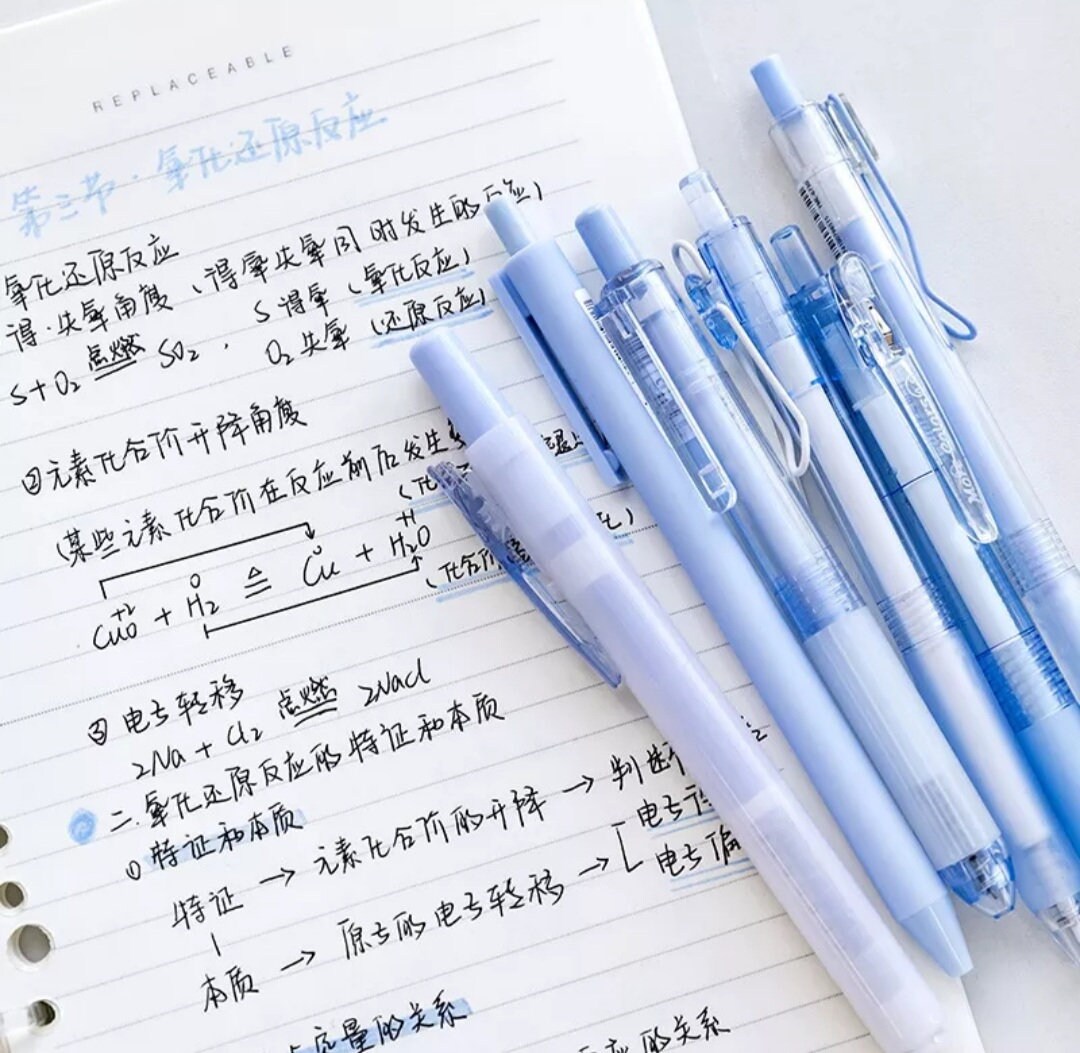 REPLACEABLE
第三节·氧化还原反应
氧化还原反应
得·失氧角度、(得氧失氧同时发生的反应)
S+O₂ 点燃 SO₂ . S得氧 (氧化反应)
O₂失氧 (还原反应)
②元素化合价升降角度
(某些元素化合价在反应前后发生
(化
(化合价
+2 0 0 +1
CuO + H₂ ≜ Cu + H₂O
③电子转移
2Na + Cl₂ 点燃 2NaCl
二.氧化还原反应的特征和本质
①特征和本质
特征 → 元素化合价的升降 → 判
本质 → 原子的电子转移 → [ 电子
电子偏
质量的关系
应的关系
More Color